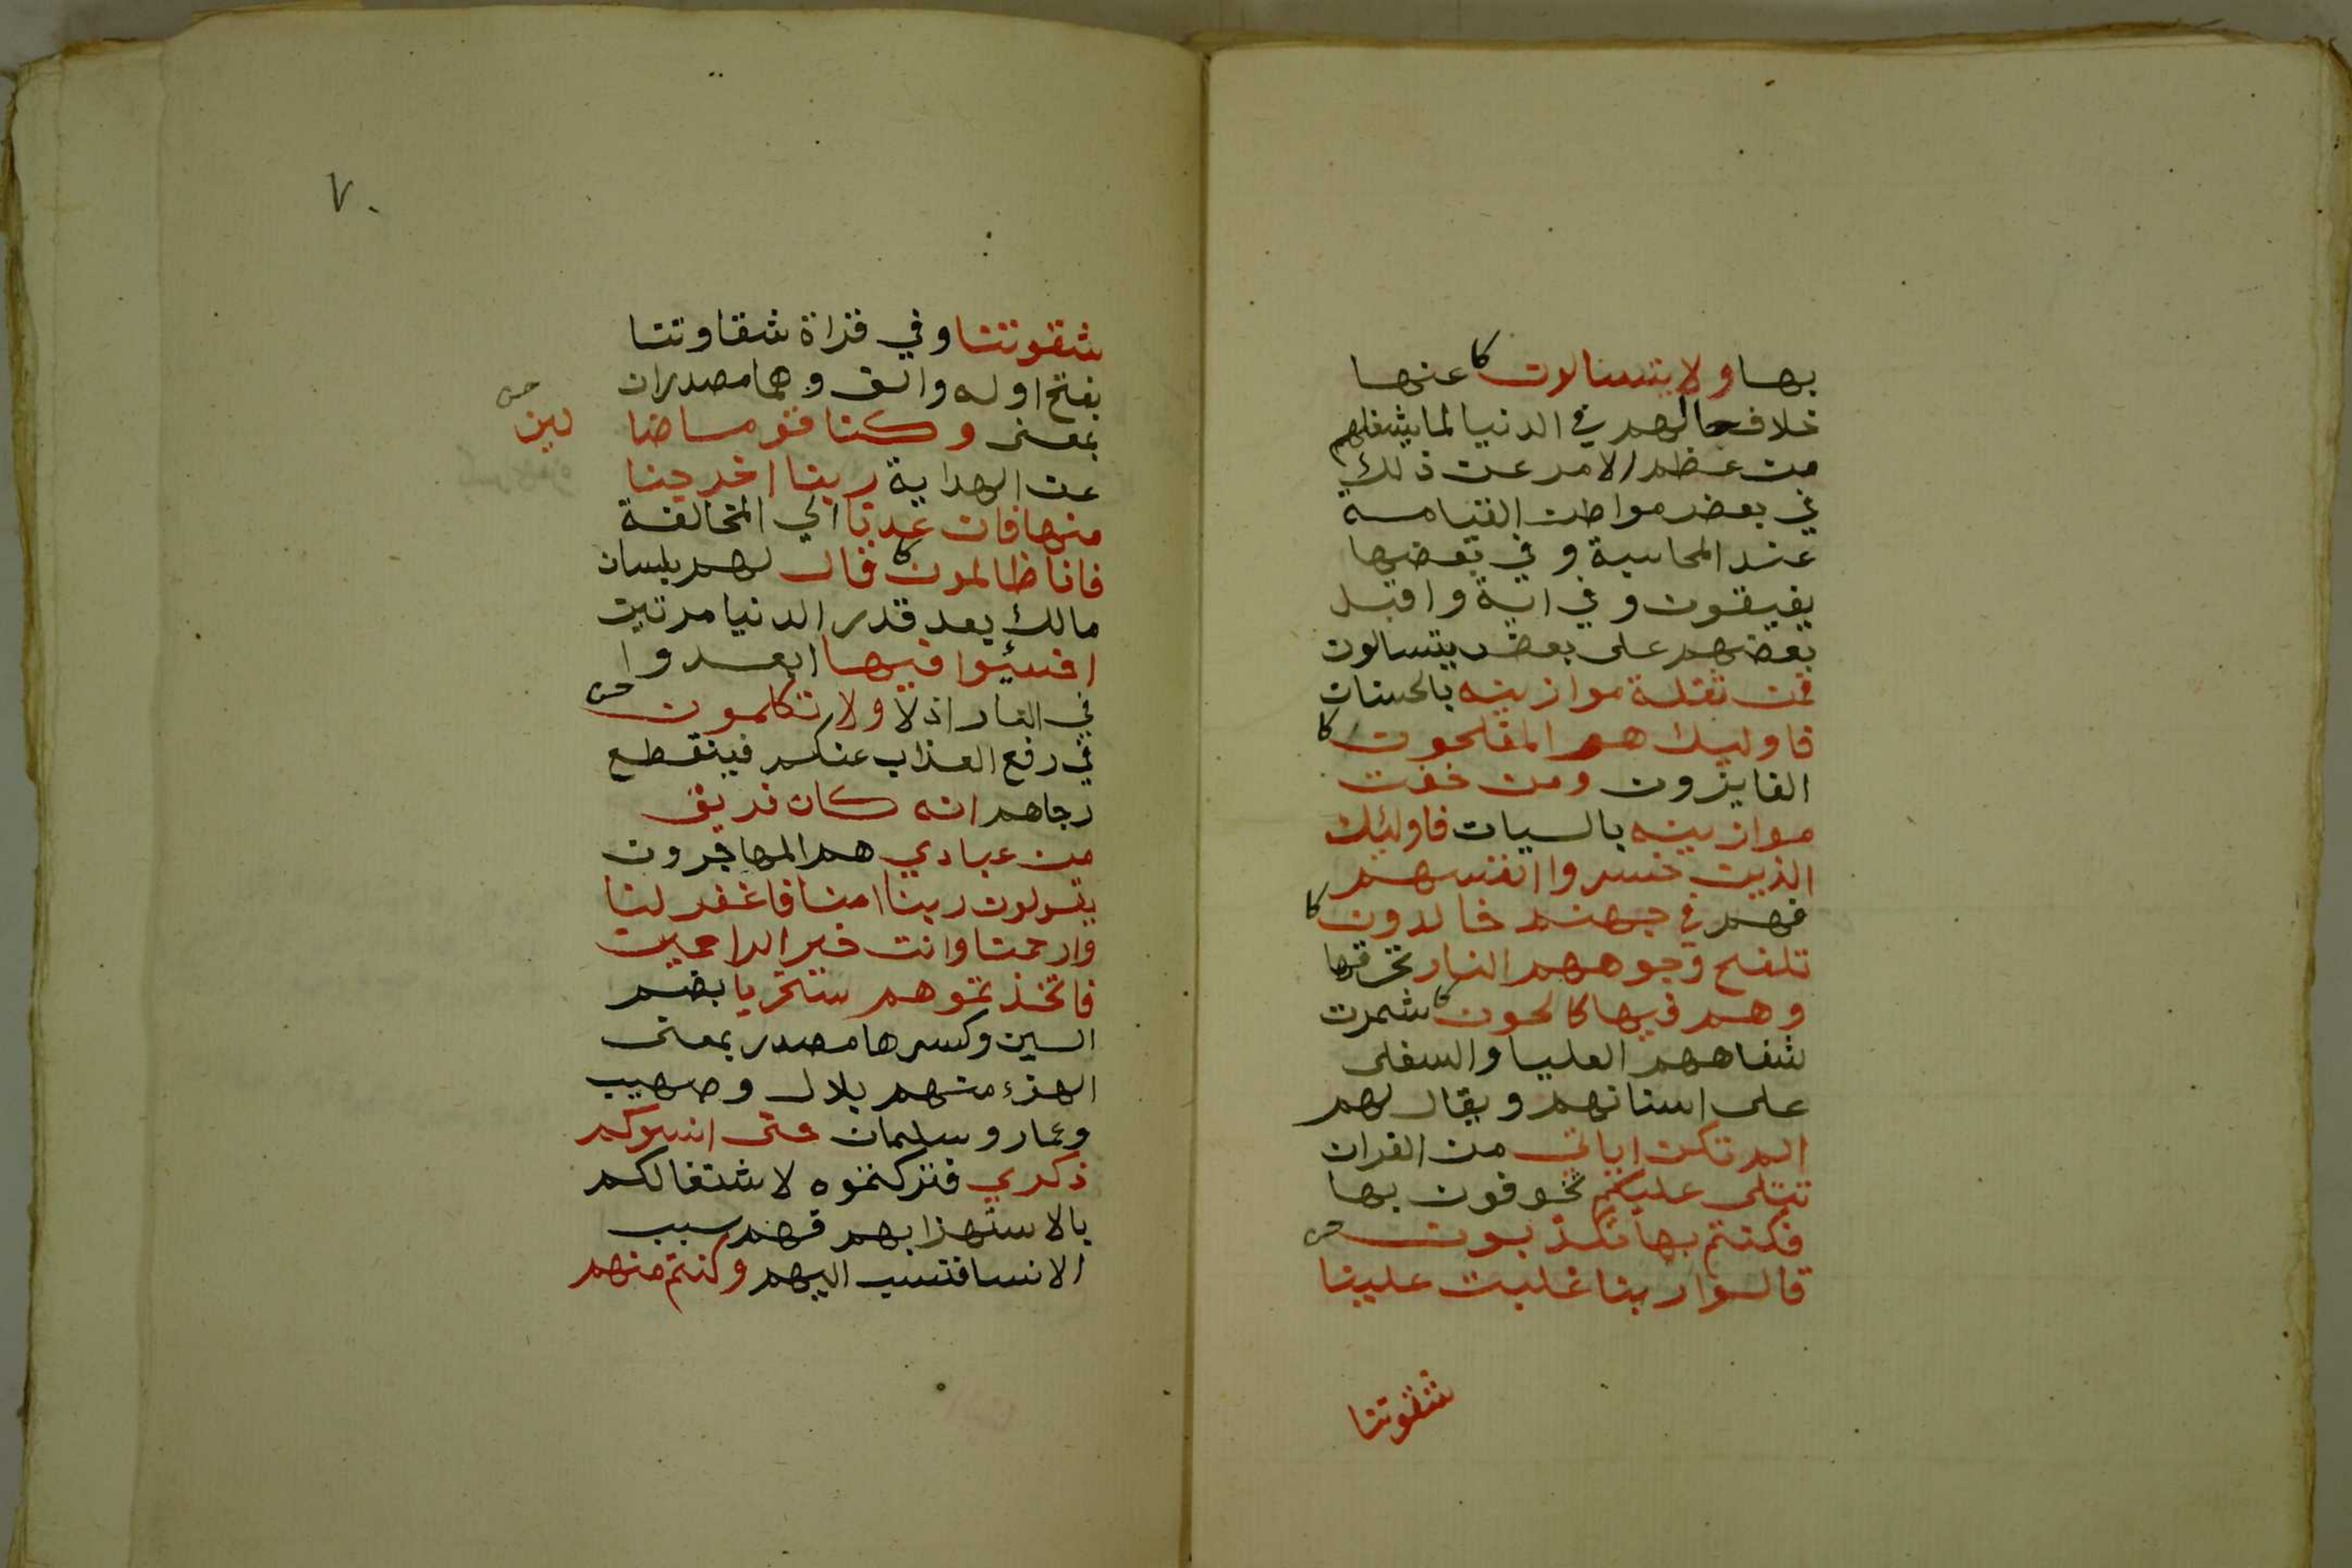 بها ولا يتسالون كا عنها
خلاف حالهم في الدنيا لما يشغلهم
من عظم الامر عن ذلك
في بعض مواطن القيامة
عند المحاسبة وفي بعضها
يفيقون وفي اية واقبل
بعضهم على بعض يتسالون
فمن تقلة موازينه بالحسنات
فاوليك هم المفلحون كا
الفايزون ومن خفت
موازينه بالسيات فاوليك
الذين خسروا انفسهم
فهم في جهنم خالدون كا
تلفح وجوههم النار تحرقها
وهم فيها كالحون كا شمرت
شفاههم العليا والسفلى
على اسنانهم ويقال لهم
الم تكن اياتي من القران
تتلى عليكم تخوفون بها
فكنتم بها تكذبون
قالوا ربنا غلبت علينا
شقوتنا
٧٠
شقوتنا وفي قراة شقاوتنا
بفتح اوله والف وهما مصدران
بمعنى وكنا قوما ضا
لين
عن الهداية ربنا اخرجنا
منها فان عدنا الي المخالفة
فانا ظالمون كا قال لهم بلسان
مالك بعد قدر الدنيا مرتين
اخسئوا فيها ابعدوا
في النار اذلا ولا تكلمون
في رفع العذاب عنكم فينقطع
رجاهم انه كان فريق
من عبادي هم المهاجرون
يقولون ربنا امنا فاغفر لنا
وارحمنا وانت خير الراحمين
فاتخذتموهم سخريا بضم
السين وكسرها مصدر بمعنى
الهزء منهم بلال وصهيب
وعمار وسلمان حتى انسوكم
ذكري فتركتموه لاشتغالكم
بالاستهزا بهم فهم سبب
الانسا فنسب اليهم وكنتم منهم